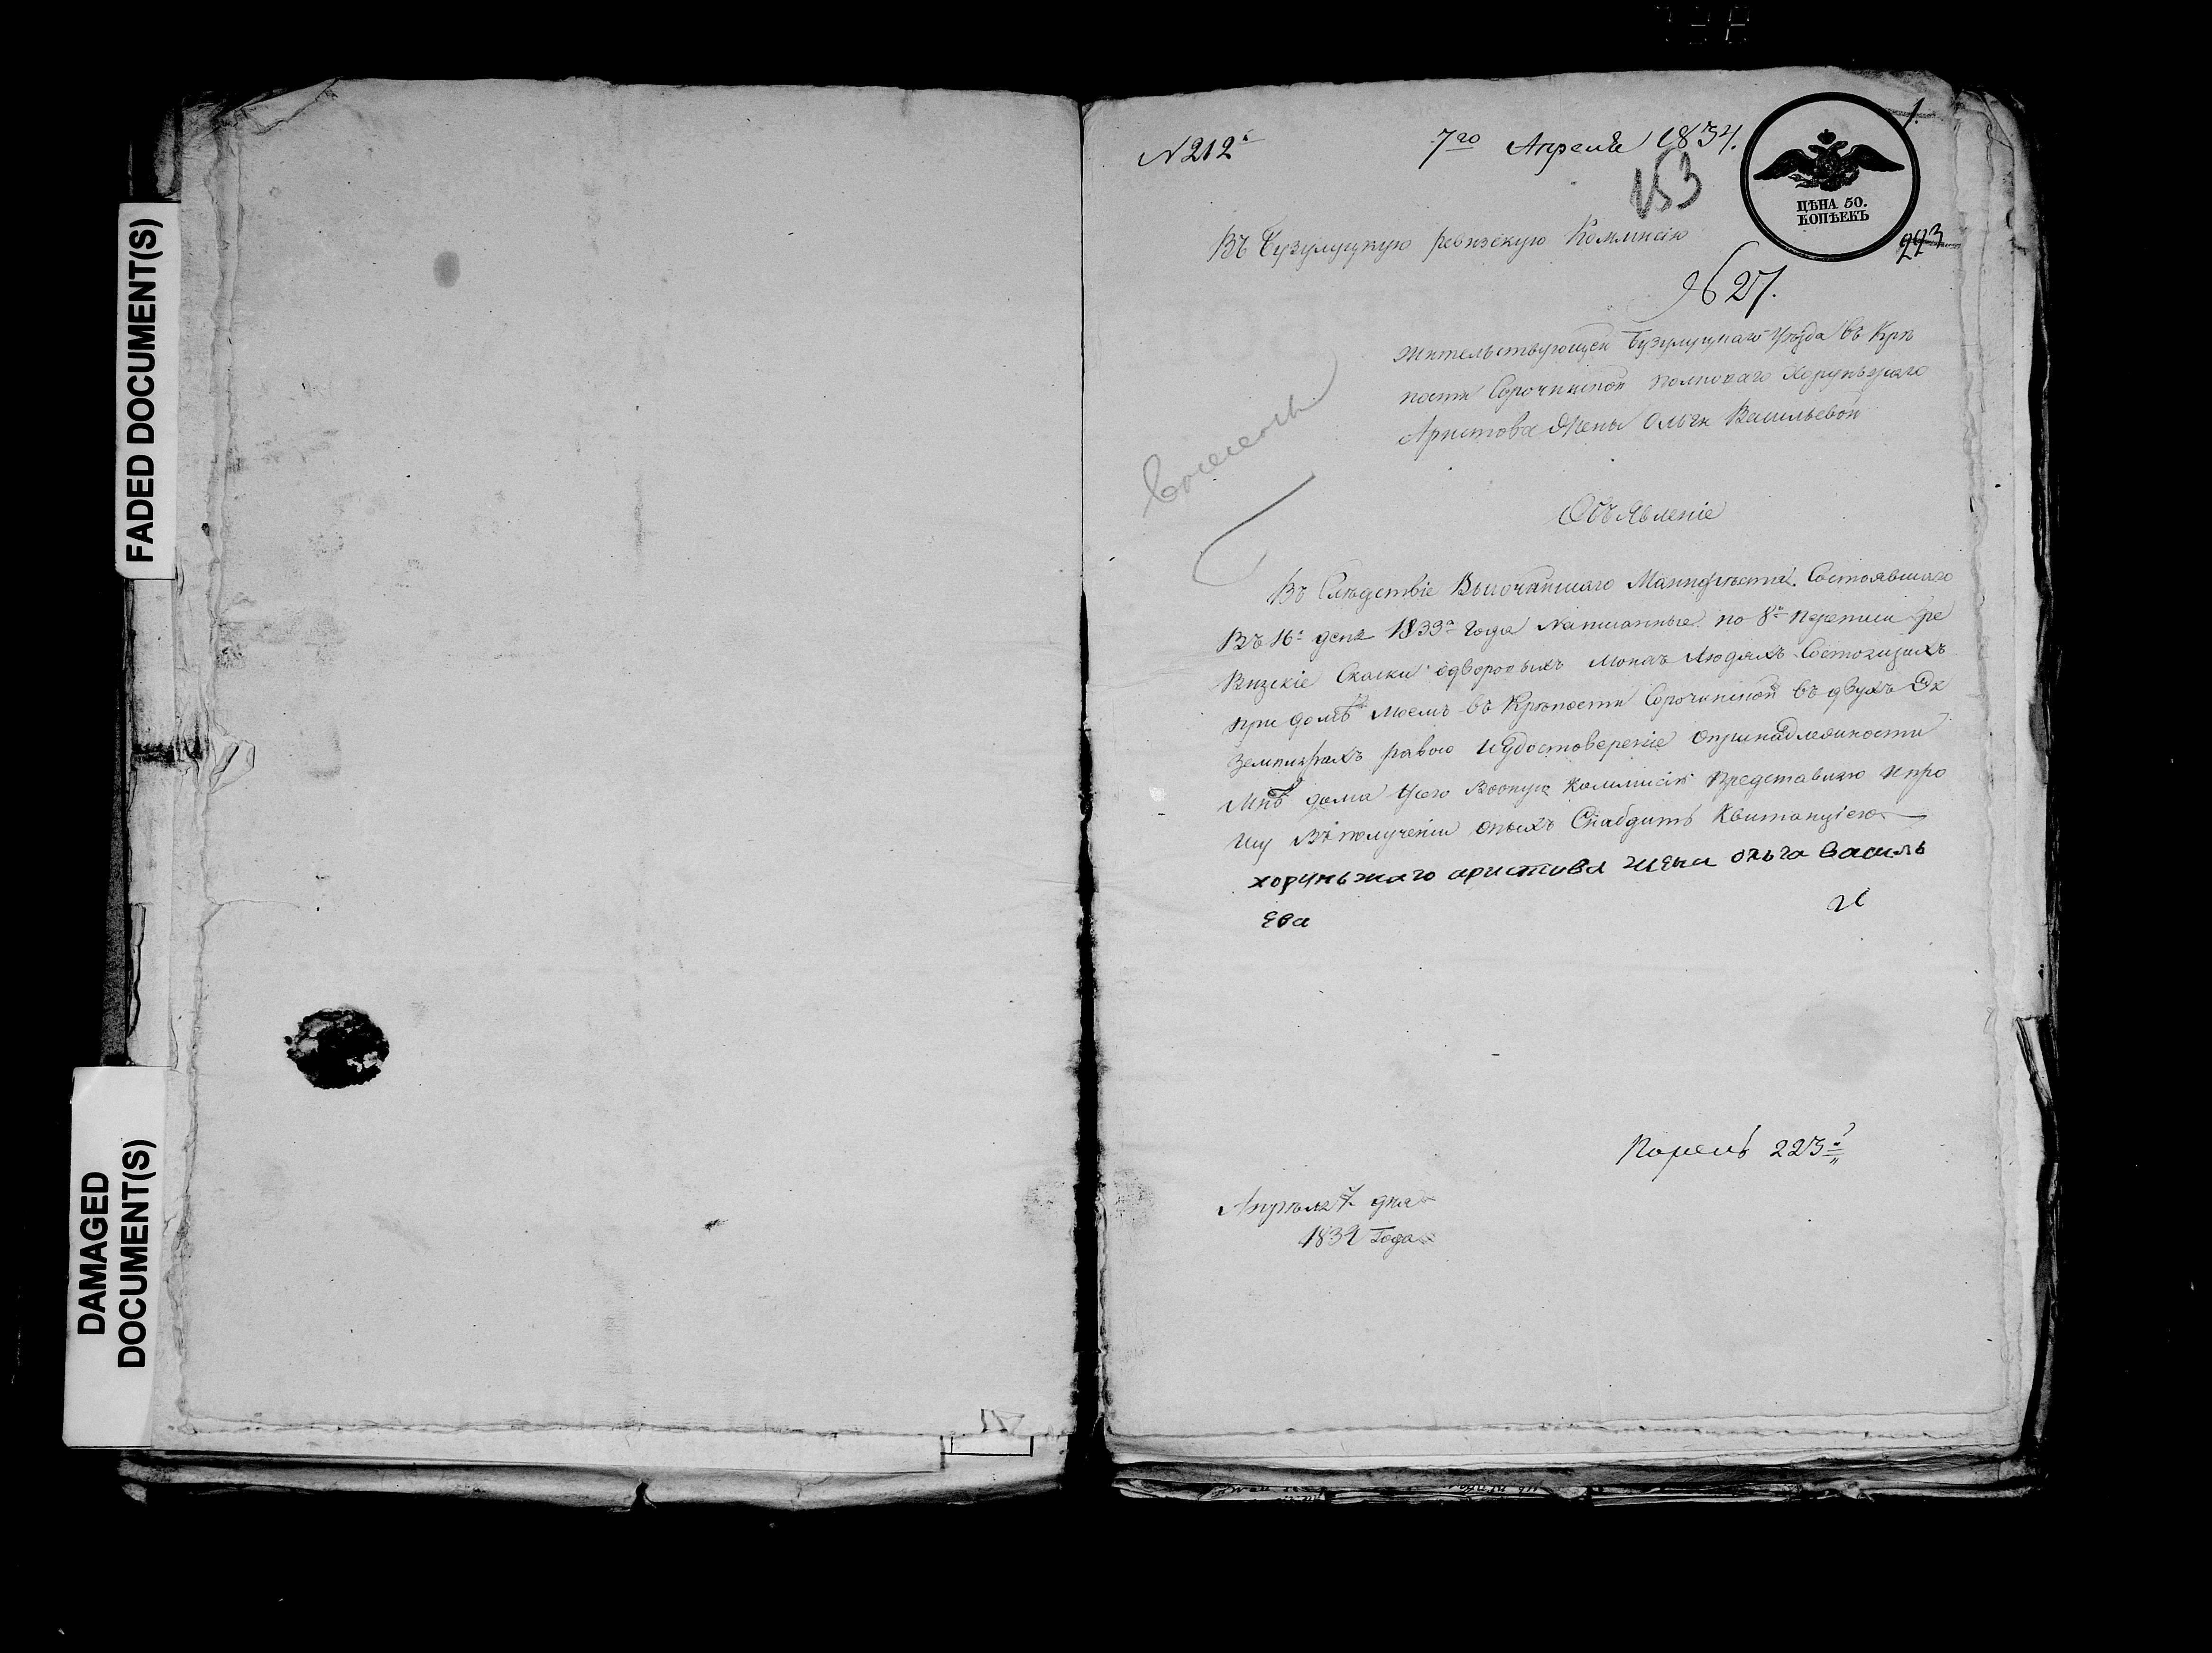 FADED DOCUMENT(S)
DAMAGED
DOCUMENT(S)
N 212
7го Апреля 1834.
1.
153
ЦѢНА 50.
КОПѢЕКЪ
223
Въ Бузулуцкую ревизскую Коммисiю
№ 27.
Жительствующей Бузулуцкаго Уѣзда въ Крѣ
пости Сорочинской полковаго Хоруньжаго
Аристова Жены Ольги Васильевой
Объявленiе
Въ Слѣдствiе Высочайшаго Манифѣста Состоявшаго
Въ 16 день 1833 года Написанные по 8й переписи ре
визскiе Скаски одворовыхъ моихъ Людяхъ Состоящихъ
при домѣ моемъ въ Крѣпости Сорочинской въ двухъ Эк
земплярахъ равно Иудостоверенiе опринадлежности
Мнѣ дома УсегоВооную Коммисiю Представляю Ипро
шу Вполученiи оныхъ Снабдить Квитанцiею
хоруньжаго аристова жена ольга василь
ева
Апрѣля 7 дня
1834 Года